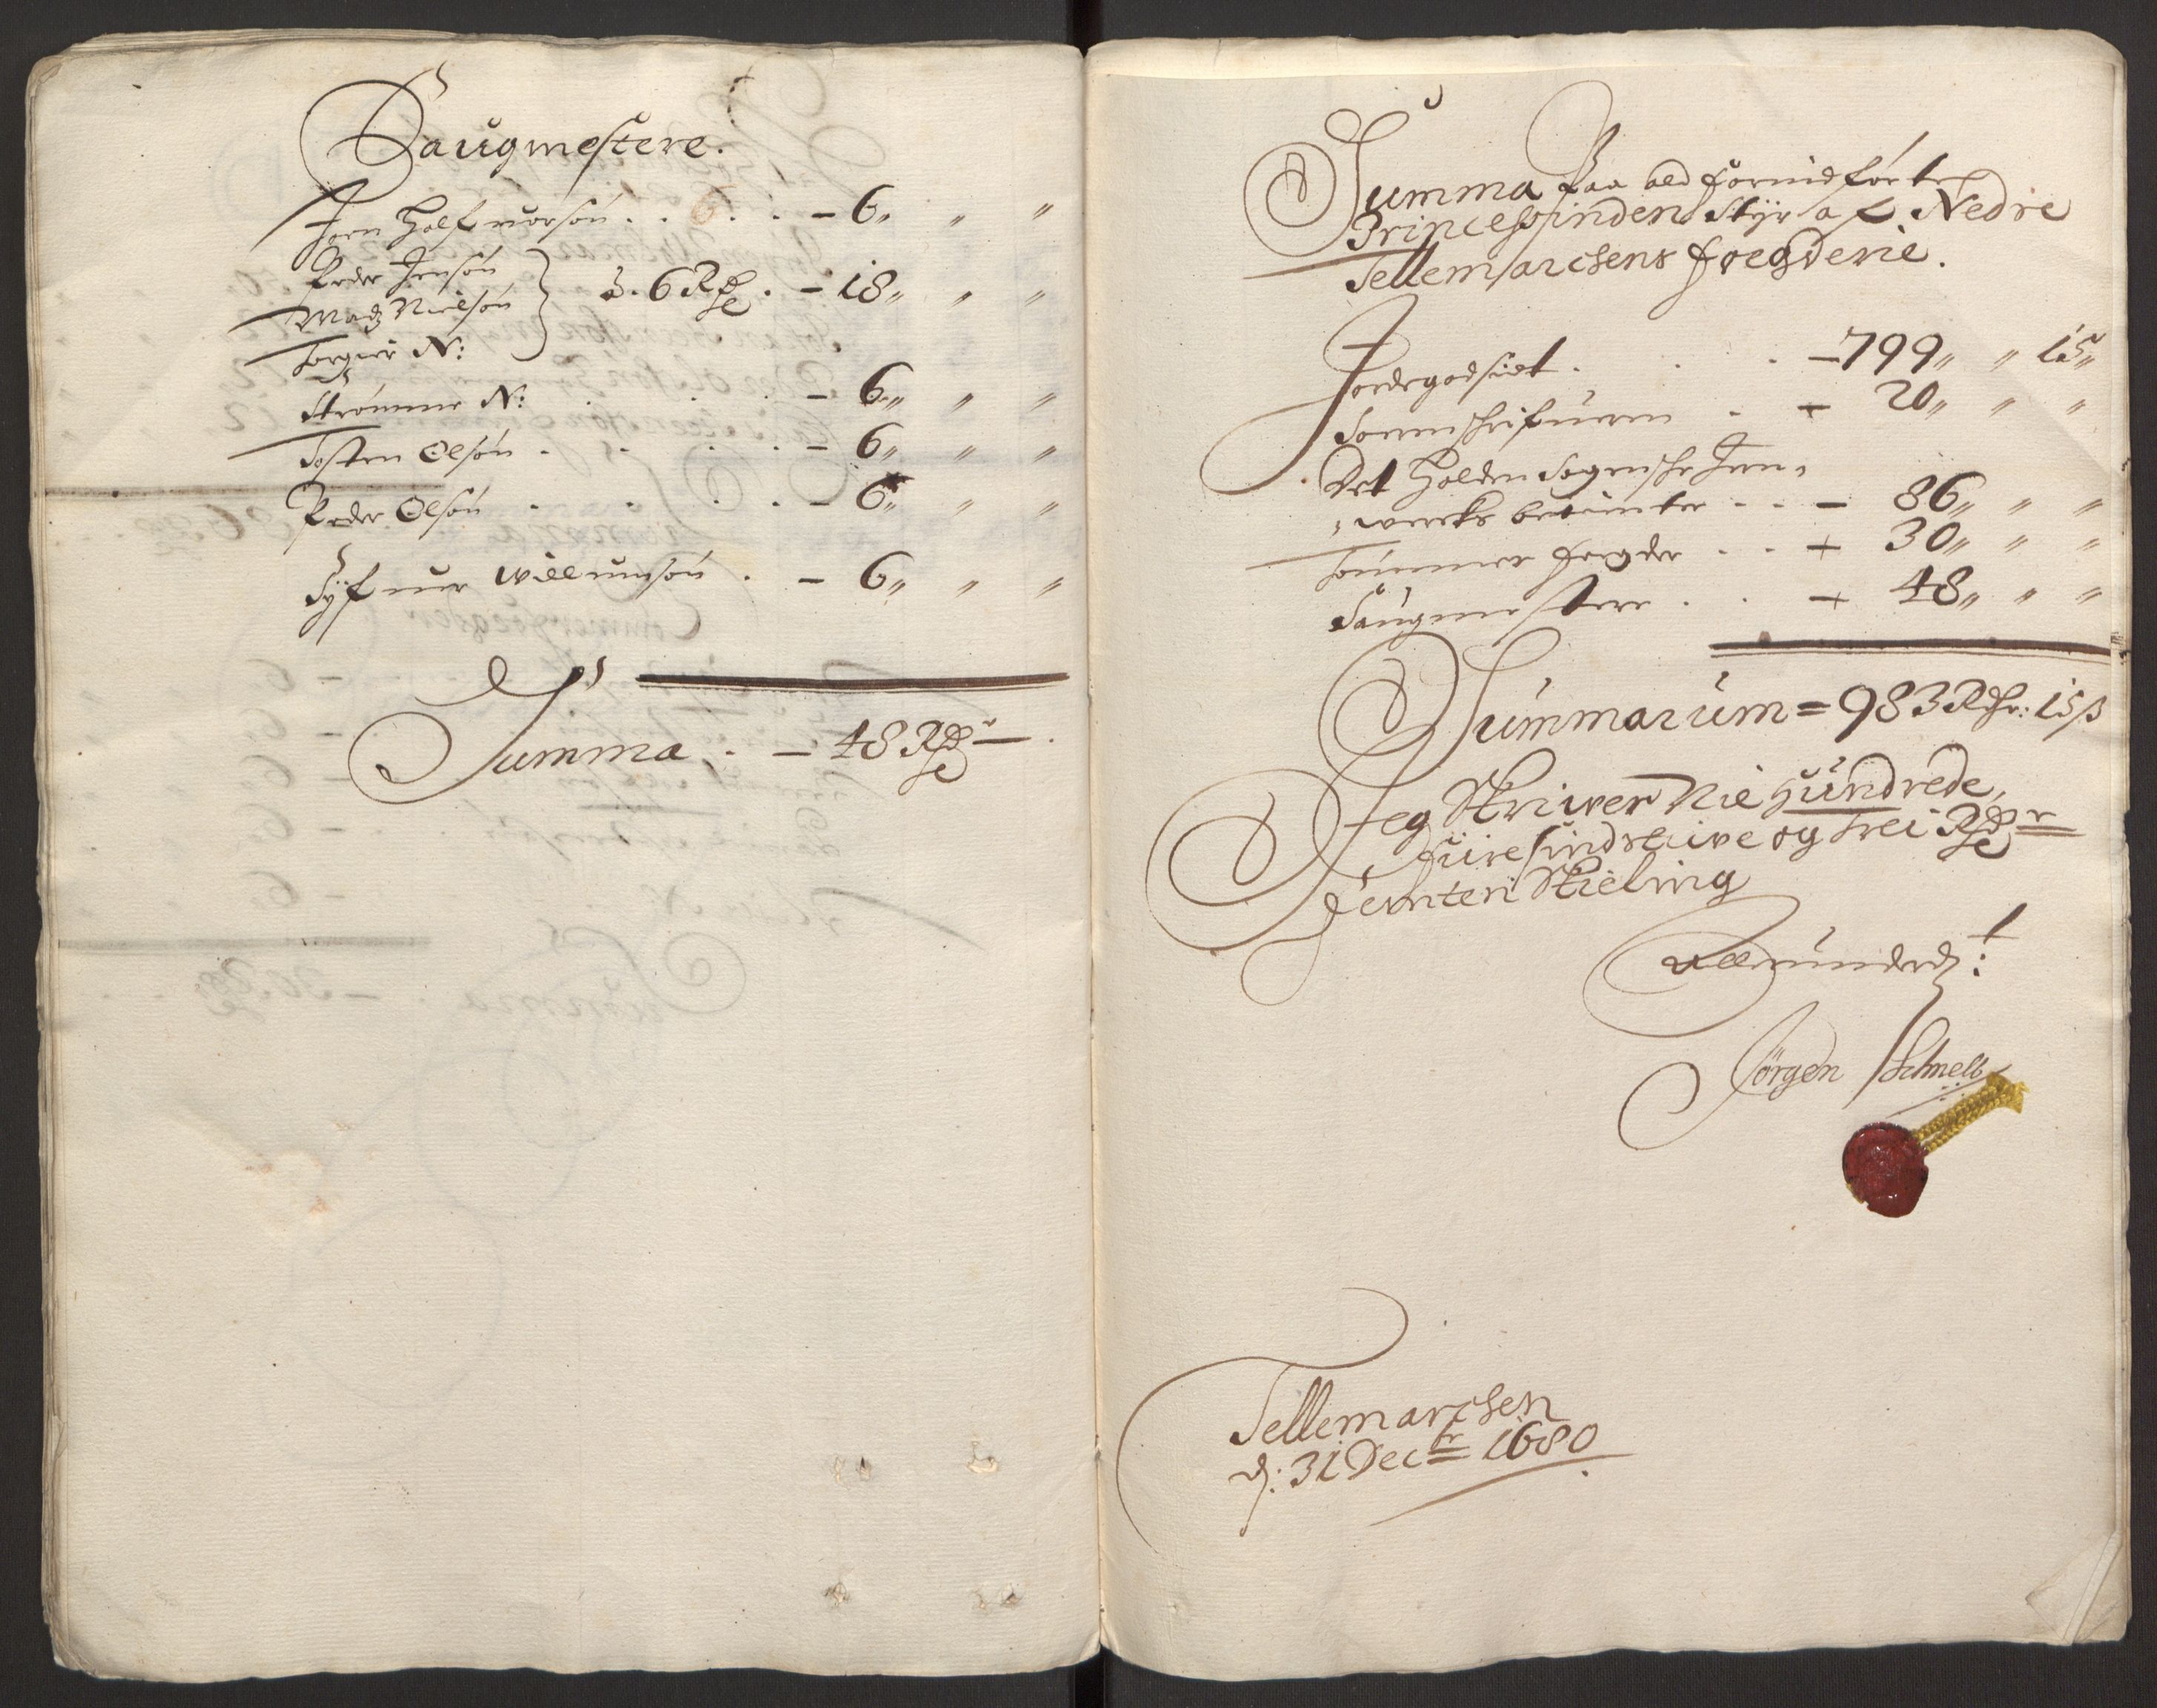 Saugmestere.
Jørn Halfvorsøn . . 6 . . — 6 〃 〃 〃
Peder Jensøn
Madz Nielsøn } 3. 6 Rdr . — 18 〃 〃 〃
Torgier N:
Strømme N: . . . — 6 〃 〃 〃
Tosten Olsøn . . . . — 6 〃 〃 〃
Peder Olsøn . . . . — 6 〃 〃 〃
Syfuer Willumsøn . — 6 〃 〃 〃
Summa . — 48 Rdr —
Summa Paa ald foreindførte
Princessinden Styr af Nedre
Tellemarchens fogderie.
Jordegodsiet . . . — 799 〃 〃 15 〃
Sorenschrifueren . — 20 〃 〃 〃
Det Holden Sogensche Jern-
-wercks betiente . . — 86 〃 〃 〃
Tømmer fogder . . — 30 〃 〃 〃
Saugmestere . . — 48 〃 〃 〃
Summarum = 983 Rdr: 15 ß
Jeg Skriver Nie Hundrede,
Fiiresindstiuve og trei Rdr
Femten Skieling
Allerunderd:
Jörgen Schnell
Tellemarchen
d: 31 Decbr 1680